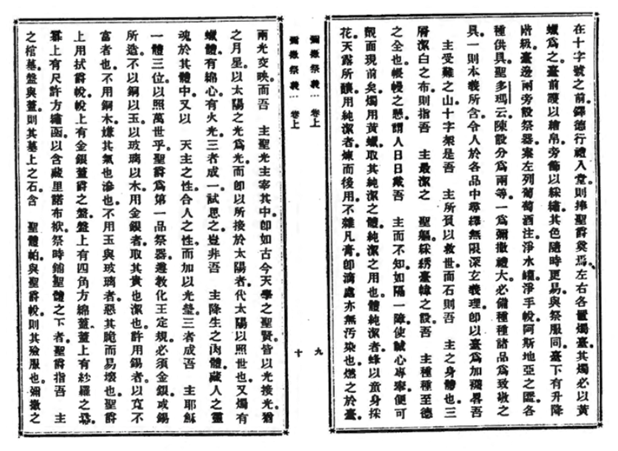 在十字號之前鐸德行禮入堂則捧聖爵奠焉左右各置燭臺其燭必以黃
蠟為之臺前護以繪帛旁飾以綵繡其色隨時更易與祭服同臺下有升降
階級臺邊兩旁設祭器案左列葡萄酒注淨水罐淨手帨阿斯地亞之匣各
種供具聖多瑪云陳設分為兩等一為彌撒禮大必備種種諸品為致敬之
具一則本義所含令人於各品中尋繹無限深玄義理即以臺為加穪畧吾
主受難之山十字架是吾 主所負以救世而石則吾 主之身體也三
層潔白之布則指吾 主最潔之 聖軀綵綉臺幃之設吾 主種種至德
之全也帳幔之懸謂人日日戴吾 主而不知如隔一障使誠心專寧便可
覿面現前矣燭用黃蠟取其純潔之體純潔之用也體純潔者蜂以童身採
花天露所釀用純潔者煉而後用不雜凡膏即滴處亦無污染也燃之於臺
彌撒祭義 卷上 九
彌撒祭義 卷上 十
兩光交映而吾 主聖光主宰其中即如古今天學之聖賢皆以光接光猶
之月星以太陽之光為光而即以所接於太陽者代太陽以照世也又燭有
蠟體有綿心有火光三者成一試思之豈非吾 主降生之肉體藏人之靈
魂於其體中又以 天主之性合人之性而加以光瑩三者成吾 主耶穌
一體三位以照萬世乎聖爵為第一品祭器遵教化王定規必須金銀或錫
所造不以銅以玉以玻璃以木用金銀者取其貴也潔也許用錫者以寬不
富者也不用銅木嫌其氣也滲也不用玉與玻璃者惡其脆而易壞也聖爵
上用拭爵帨帨上有金銀蓋爵之盤盤上有四角方綿蓋蓋上有紗羅之冪
冪上有尺許方繡函以含葳里諾布祭時飾聖體之下者聖爵指吾 主
之棺墓盤與蓋則其墓上之石含 聖體帕與聖爵帨則其殮服也彌撒之